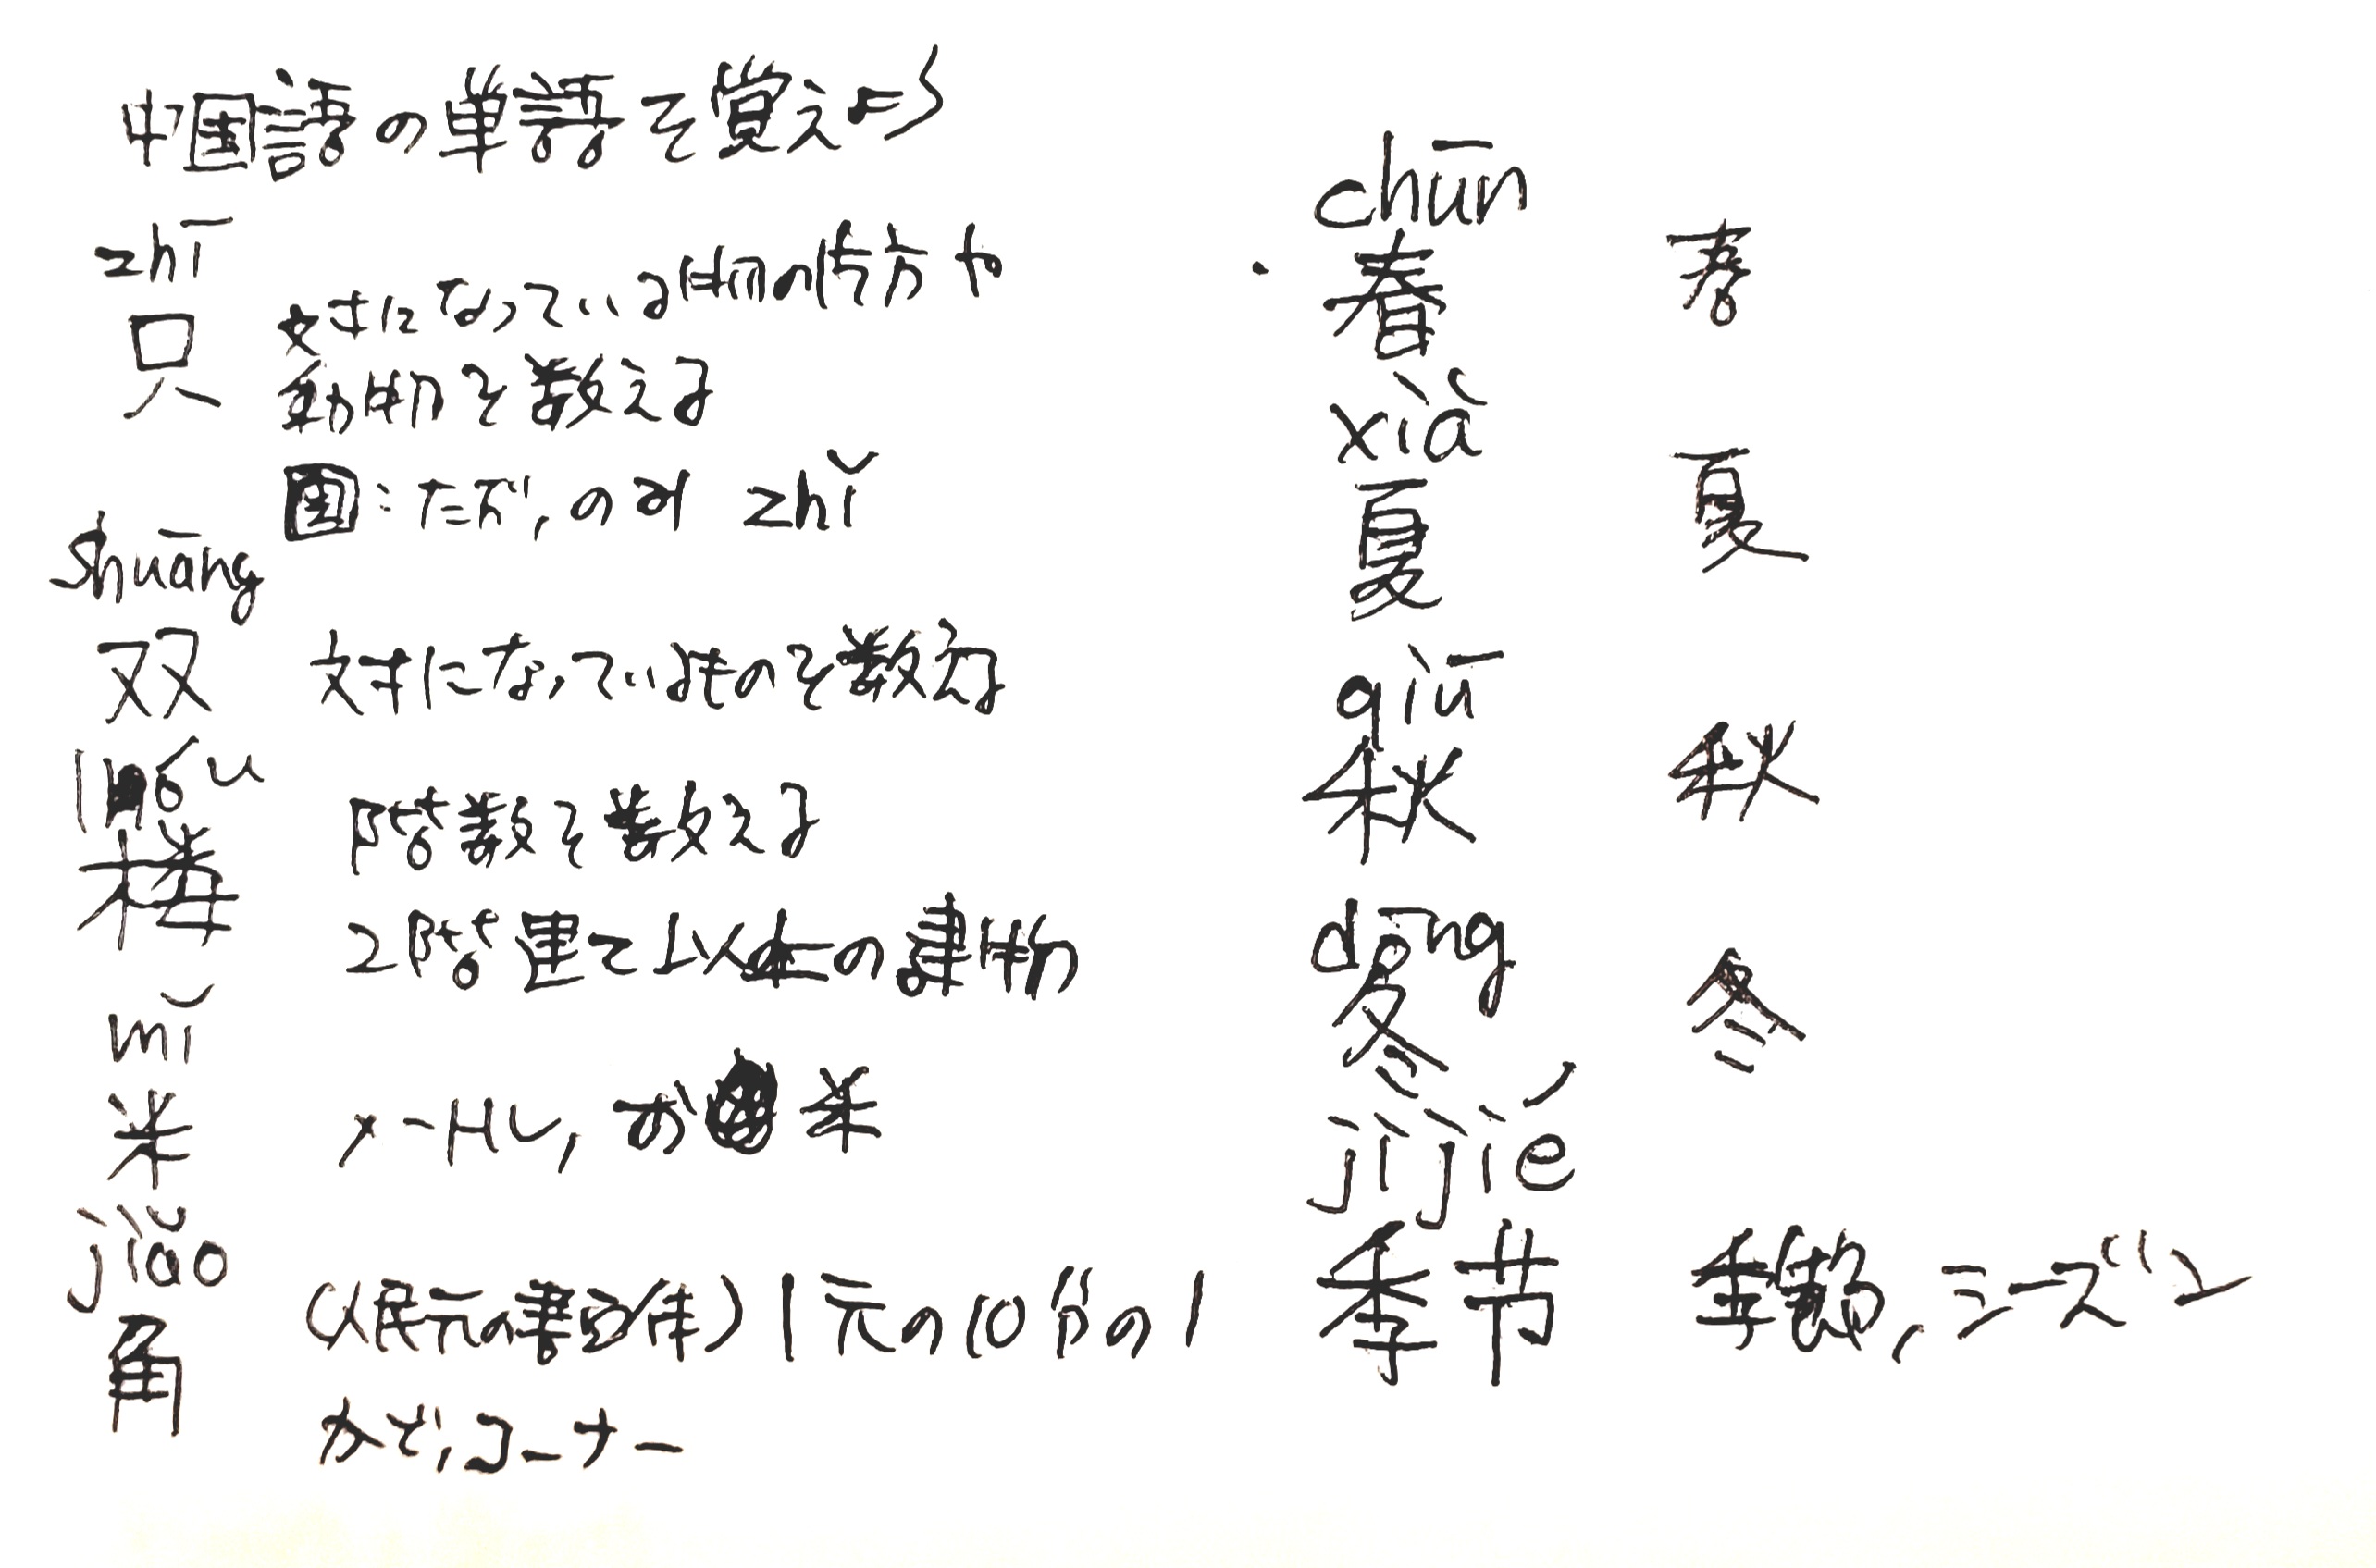 中国語の単語を覚えよう
zhī
只 対になっている物の片方や
動物を数える
圏:ただ,のみ zhǐ
shuāng
双 対になっているものを数える
lóu
楼 階数を数える
2階建て以上の建物
mǐ
米 メートル,お米
jiǎo
角 (人民元の補助単位)1元の10分の1
かど,コーナー
chūn
春 春
xià
夏 夏
qiū
秋 秋
dōng
冬 冬
jì jié
季节 季節,シーズン